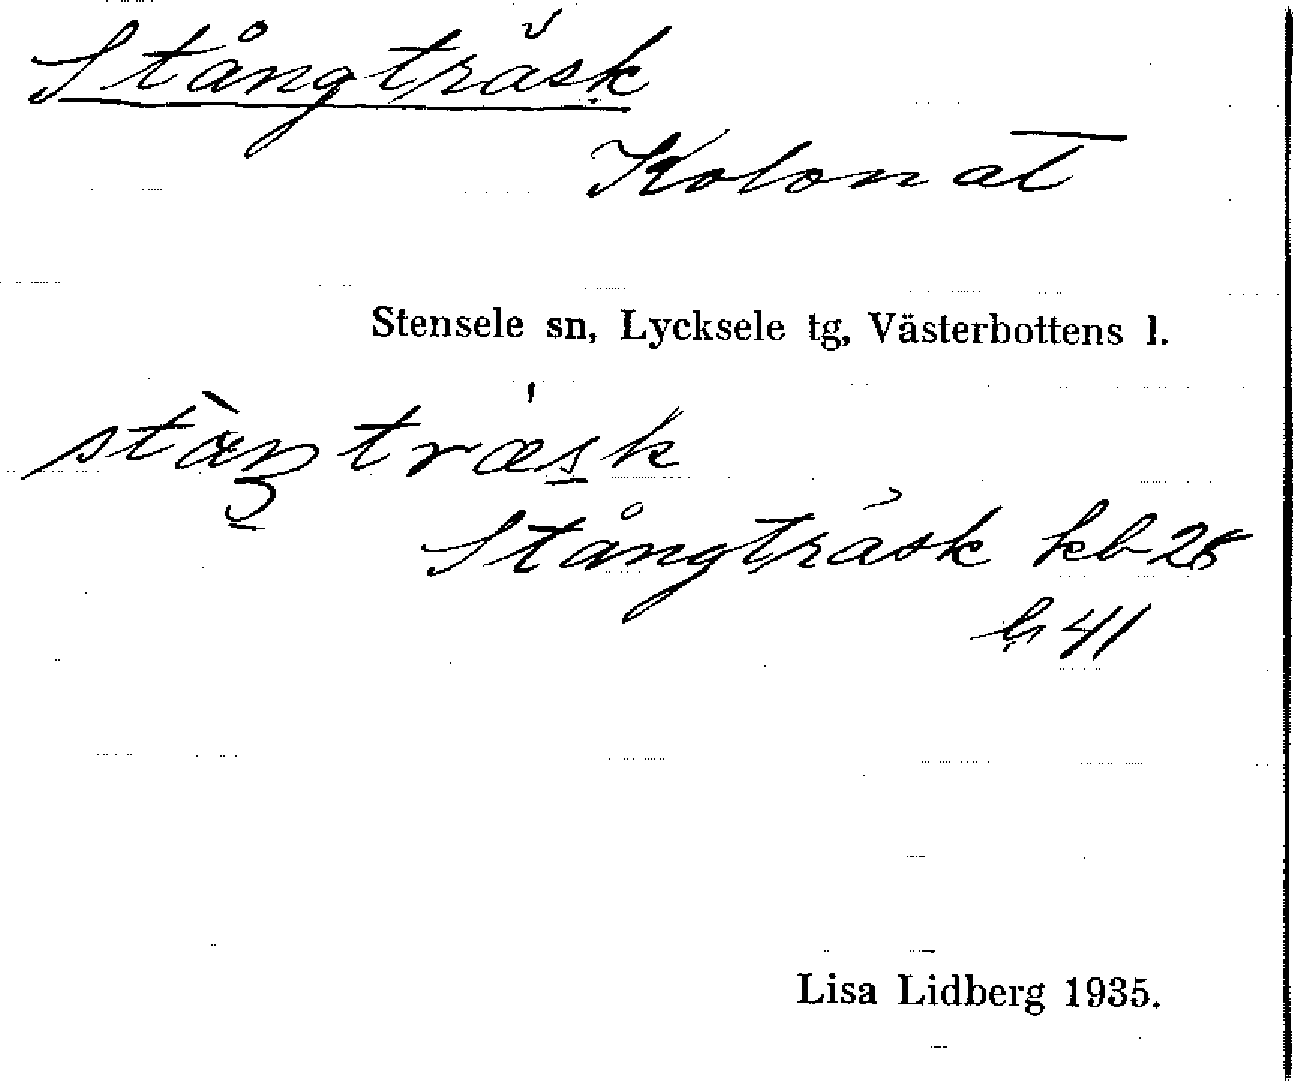 Stångträsk
Kolonat
Stensele sn, Lycksele tg, Västerbottens l.
Stångträsk kb 28
41
Lisa Lidberg 1935.